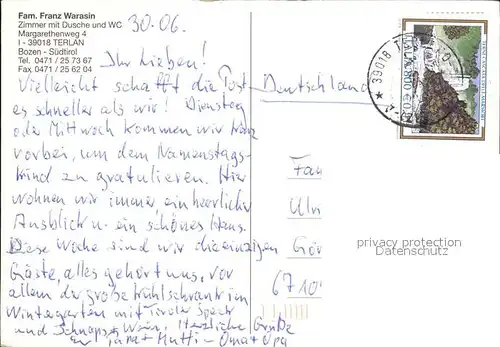 Fam. Franz Warasin
Zimmer mit Dusche und WC
Margarethenweg 4
I - 39018 TERLAN
Bozen - Südtirol
Tel. 0471 / 25 73 67
Fax 0471 / 25 62 04
30.06.
Ihr Lieben!
Vielleicht schafft die Post
es schneller als wir! Dienstag
oder Mittwoch kommen wir kurz
vorbei, um dem Namenstags-
kind zu gratulieren. Hier
wohnen wir immer ein herrlicher
Ausblick u. ein schönes Haus.
Diese Woche sind wir die einzigen
Gäste, alles gehört uns, vor
allem der große Kühlschrank im
Wintergarten mit Tiroler Speck
und Schnaps, Wein. Herzliche Grüße
+ Mutti - Oma + Opa
Deutschland
Fam
Ulr
Gör
6710
39018
ITALIA 800 € 0,41
privacy protection
Datenschutz